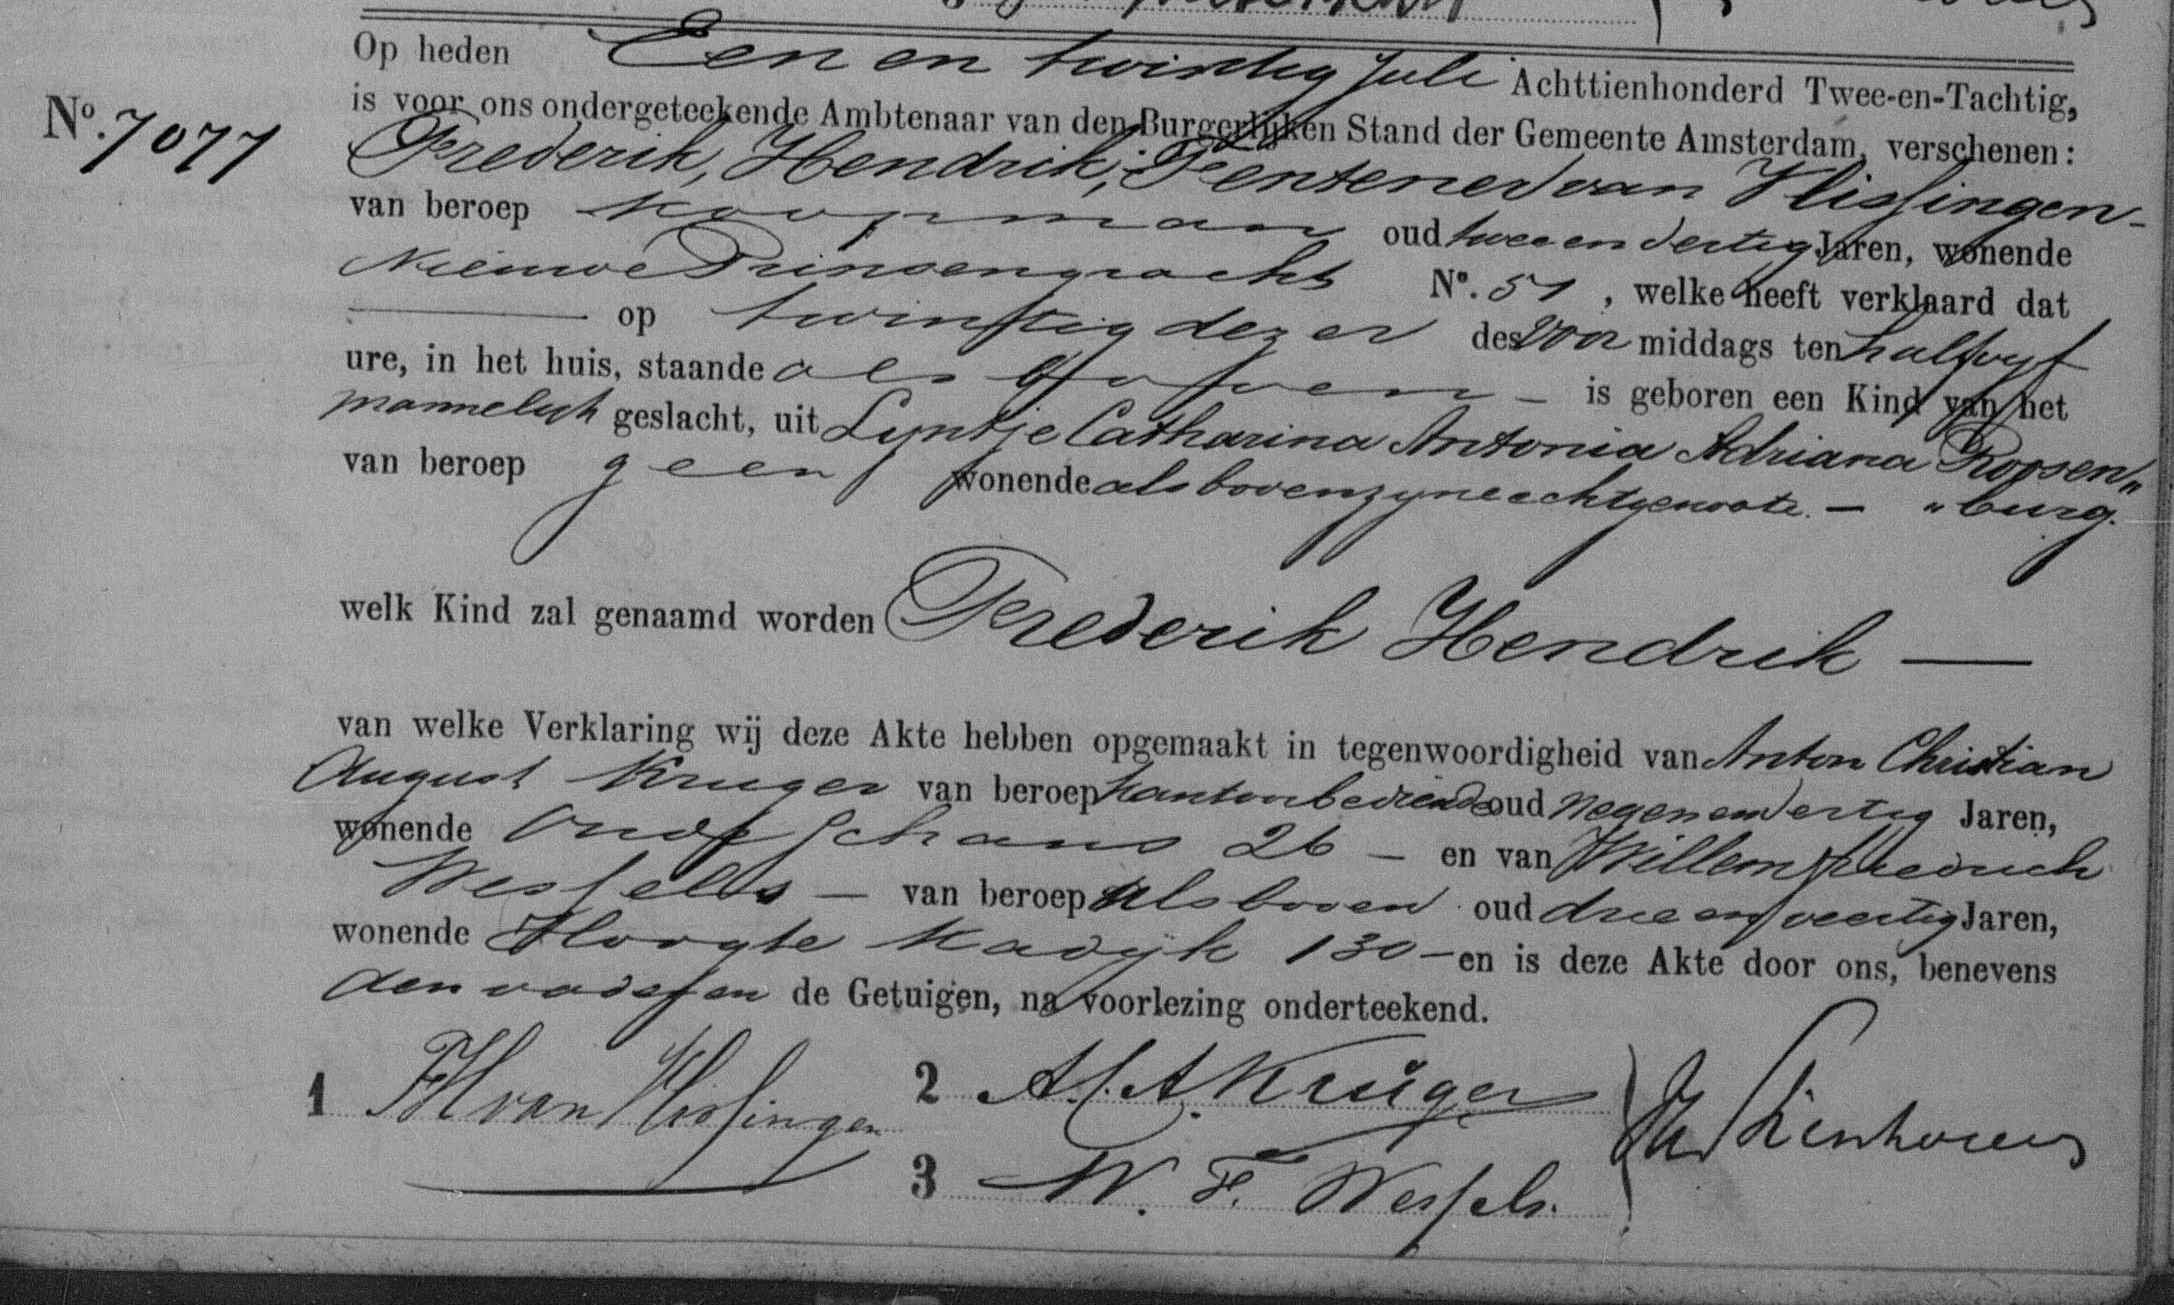 Op heden Een en twintig Juli Achttienhonderd Twee-en-Tachtig,
is voor ons ondergeteekende Ambtenaar van den Burgerlijken Stand der Gemeente Amsterdam, verschenen:
No. 7077
Frederik, Hendrik, Fentener van Vlissingen -
van beroep koopman oud twee en dertig Jaren, wonende
Nieuwe Prinsengracht No. 51, welke heeft verklaard dat
op twintig dezer des voor middags ten half vyf
ure, in het huis, staande als boven - is geboren een Kind van het
mannelyk geslacht, uit Lyntje Catharina Antonia Adriana Roosen„
van beroep geen wonende als boven zyne echtgenoote. - „burg.
welk Kind zal genaamd worden Frederik Hendrik —
van welke Verklaring wij deze Akte hebben opgemaakt in tegenwoordigheid van Anton Christian
August Kruger van beroep kantoorbediende oud negen en dertig Jaren,
wonende Oude Schans 26 - en van Willem Friedrich
Wessels - van beroep als boven oud drie en veertig Jaren,
wonende Hoogte Kadyk 130 - en is deze Akte door ons, benevens
den vader en de Getuigen, na voorlezing onderteekend.
1 FH van Vlissingen
2 A. C. A. Krüger
3 W. F. Wessels.